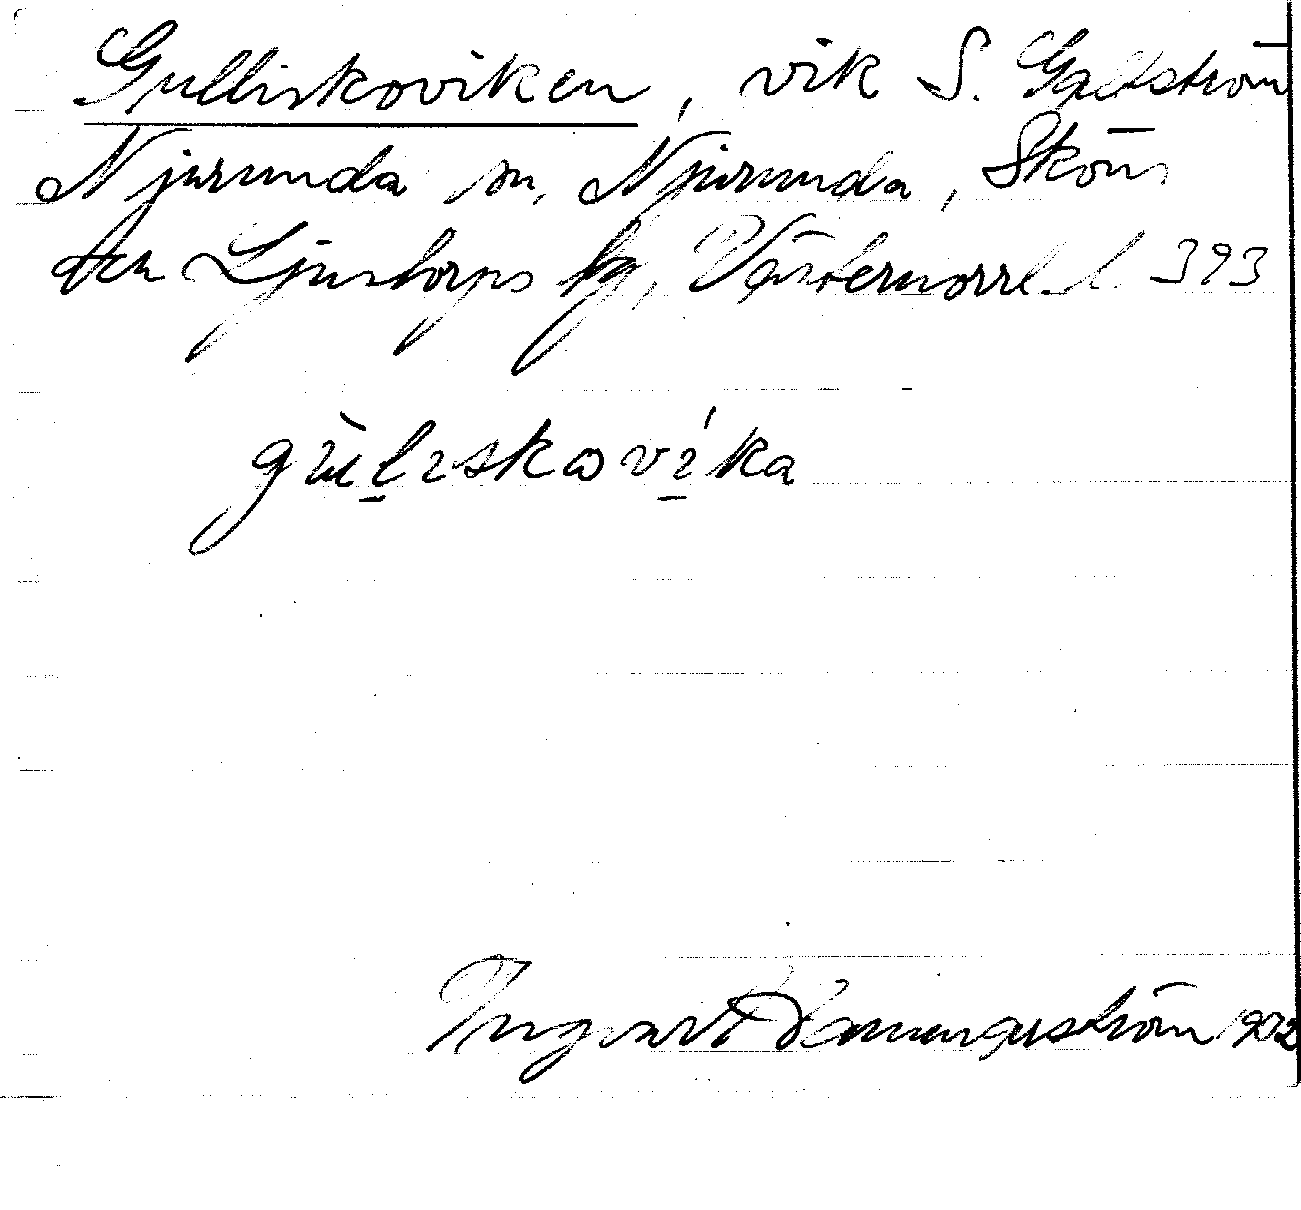 Gulliskoviken, vik S. Galtström
Njurunda sn, Njurunda, Sköns
och Ljustorps tg, Västernorrl. l. 393
gu̇̀l̠ıskωvı̠́ka
Ingvar Hammarström 1932